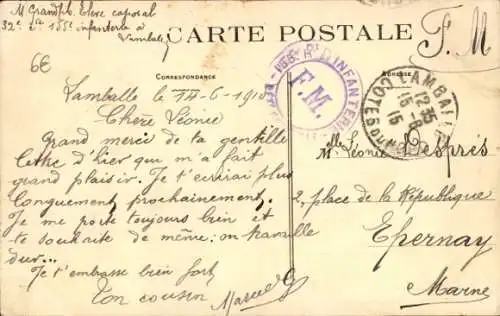 M. Grandph. Eleve caporal
32e Cie 155e infanterie à
Lamballe
CARTE POSTALE
F. M
6E
CORRESPONDANCE
ADRESSE
D'INFANTERIE
F.M.
LAMBALLE
12 35
15 -6
15
COTES DU NORD
Lamballe le 14-6-1915
Chère Léonie
Grand merci de ta gentille
lettre d'hier qui m'a fait
grand plaisir. Je t'ecrirai plus
longuement prochainement.
Je me porte toujours bien et
te souhaite de même; on travaille
dur...
Je t'embrasse bien fort
Ton cousin Marcel G
Melle Léonie Després
2, place de la République
Epernay
Marne